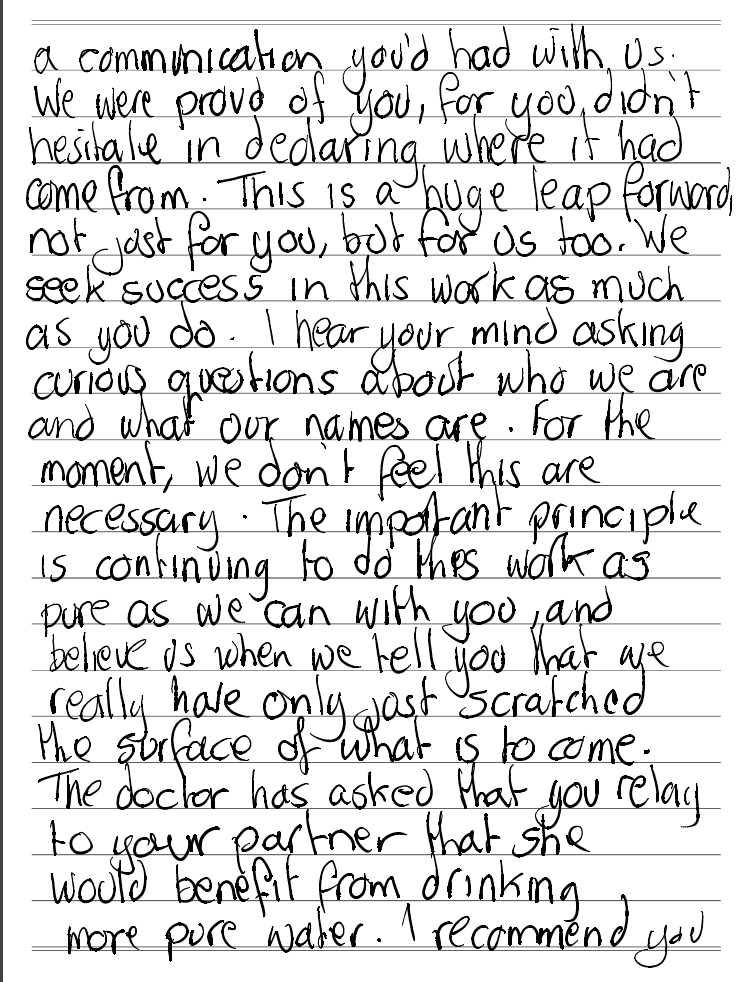 a communication you'd had with us.
We were proud of you, for you didn't
hesitate in declaring where it had
come from. This is a huge leap forward,
not just for you, but for us too. We
seek success in this work as much
as you do. I hear your mind asking
curious questions about who we are
and what our names are. For the
moment, we don't feel this are
necessary. The important principle
is continuing to do this work as
pure as we can with you, and
believe us when we tell you that we
really have only just scratched
the surface of what is to come.
The doctor has asked that you relay
to your partner that she
would benefit from drinking
more pure water. I recommend you